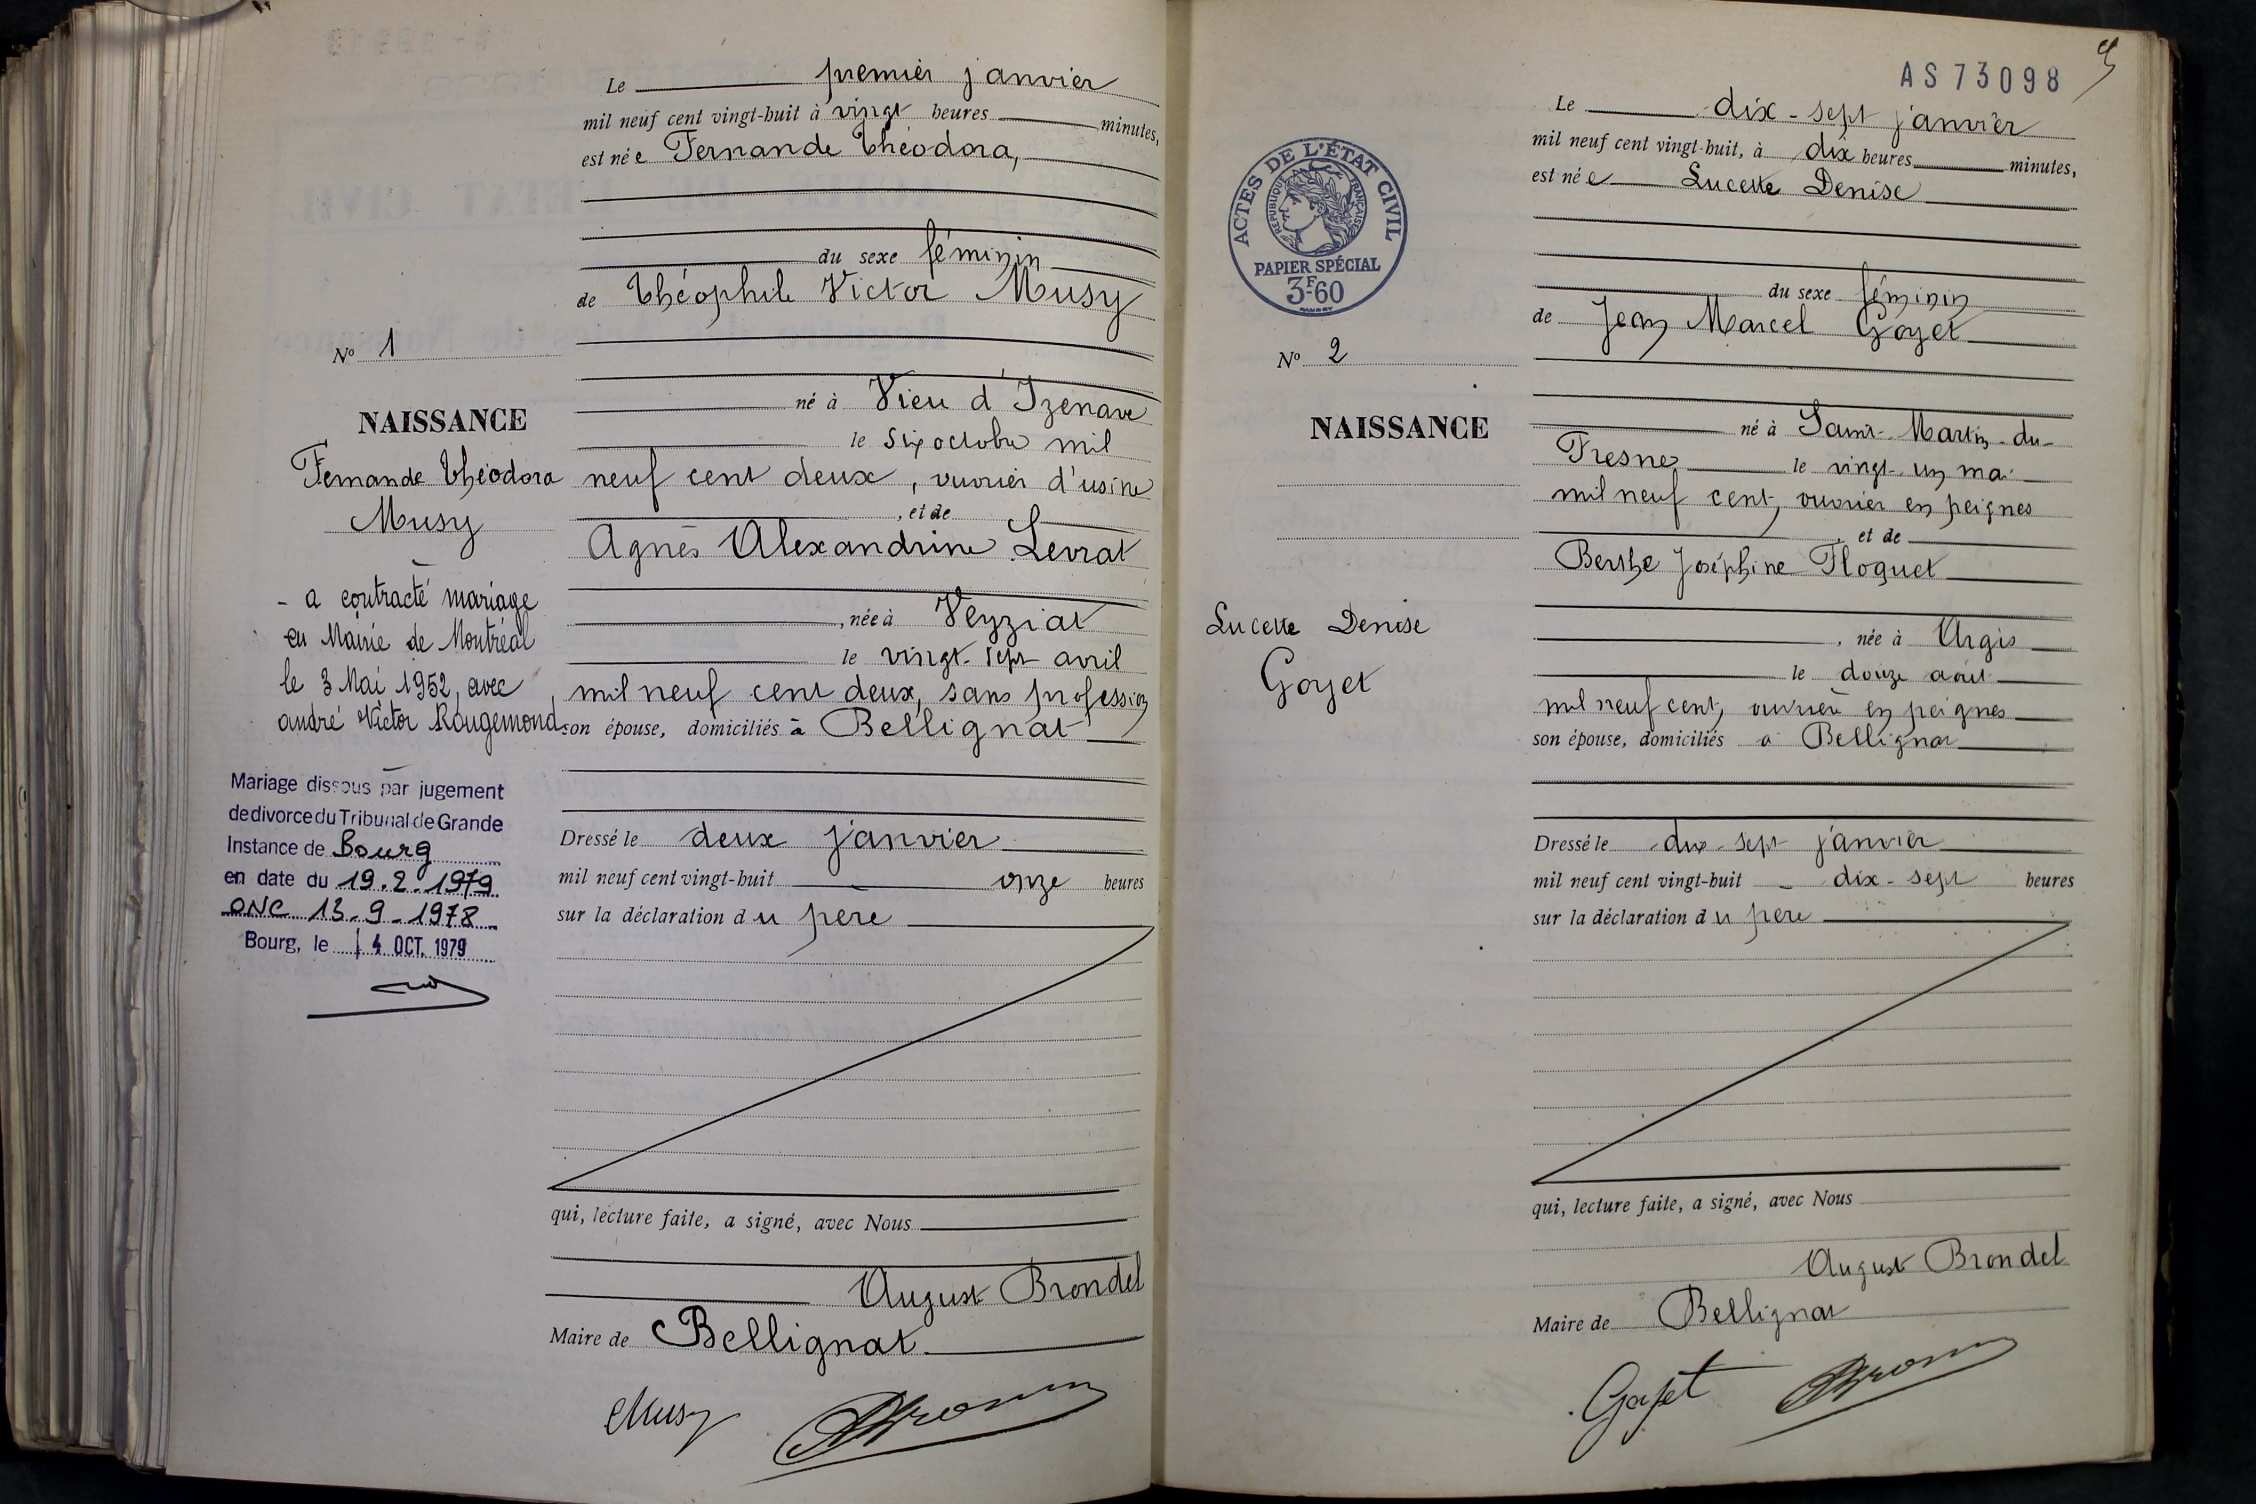 Le premier janvier
mil neuf cent vingt-huit à vingt heures minutes,
est née Fernande Théodora,
du sexe féminin
de Théophile Victor Musy
né à Vieu d'Izenave
le six octobre mil
neuf cent deux, ouvrier d'usine
, et de
Agnès Alexandrine Levrat
, née à Veyziat
le vingt-sept avril
mil neuf cent deux, sans profession
son épouse, domiciliés à Bellignat
Dressé le deux janvier
mil neuf cent vingt-huit onze heures
sur la déclaration du père
qui, lecture faite, a signé, avec Nous
August Brondel
Maire de Bellignat
Musy
No 1
NAISSANCE
Fernande Théodora
Musy
- a contracté mariage
en Mairie de Montréal
le 3 Mai 1952, avec
andré Victor Rougemond
Mariage dissous par jugement
de divorce du Tribunal de Grande
Instance de Bourg
en date du 19.2.1979
ONC 13-9-1978
Bourg, le 4 OCT. 1979
AS73098
ACTES DE L'ÉTAT CIVIL
RÉPUBLIQUE FRANÇAISE
PAPIER SPÉCIAL
3F60
No 2
NAISSANCE
Lucette Denise
Goyet
Le dix-sept janvier
mil neuf cent vingt-huit, à dix heures minutes,
est née Lucette Denise
du sexe féminin
de Jean Marcel Goyet
né à Saint-Martin-du-
Fresne le vingt-un mai
mil neuf cent, ouvrier en peignes
, et de
Berthe Joséphine Floquet
, née à Argis
le douze août
mil neuf cent, ouvrière en peignes
son épouse, domiciliés à Bellignat
Dressé le dix-sept janvier
mil neuf cent vingt-huit dix-sept heures
sur la déclaration du père
qui, lecture faite, a signé, avec Nous
August Brondel
Maire de Bellignat
Goyet